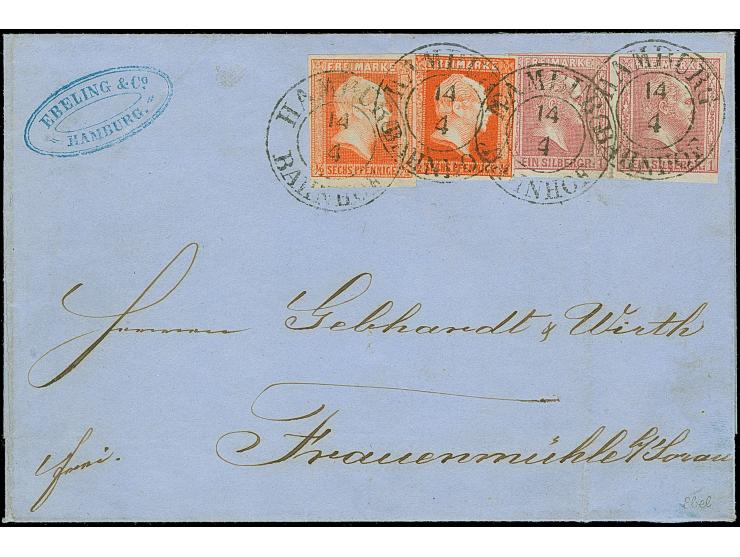 EBELING & Co.
HAMBURG.
FREIMARKE
½ SECHS PFENNIGE
HAMBURG
14
4
BAHNHOF
FREIMARKE
SECHS PFENNIGE
HAMBURG
14
4
BAHNHOF
FREIMARKE
EIN SILBERGR. 1
HAMBURG
14
4
BAHNHOF
FREIMARKE
SILBERGR. 1
HAMBURG
14
4
BAHNHOF
Herren Gebhardt & Wirth
Frauenmühle b/Sorau
frei.
Ebel